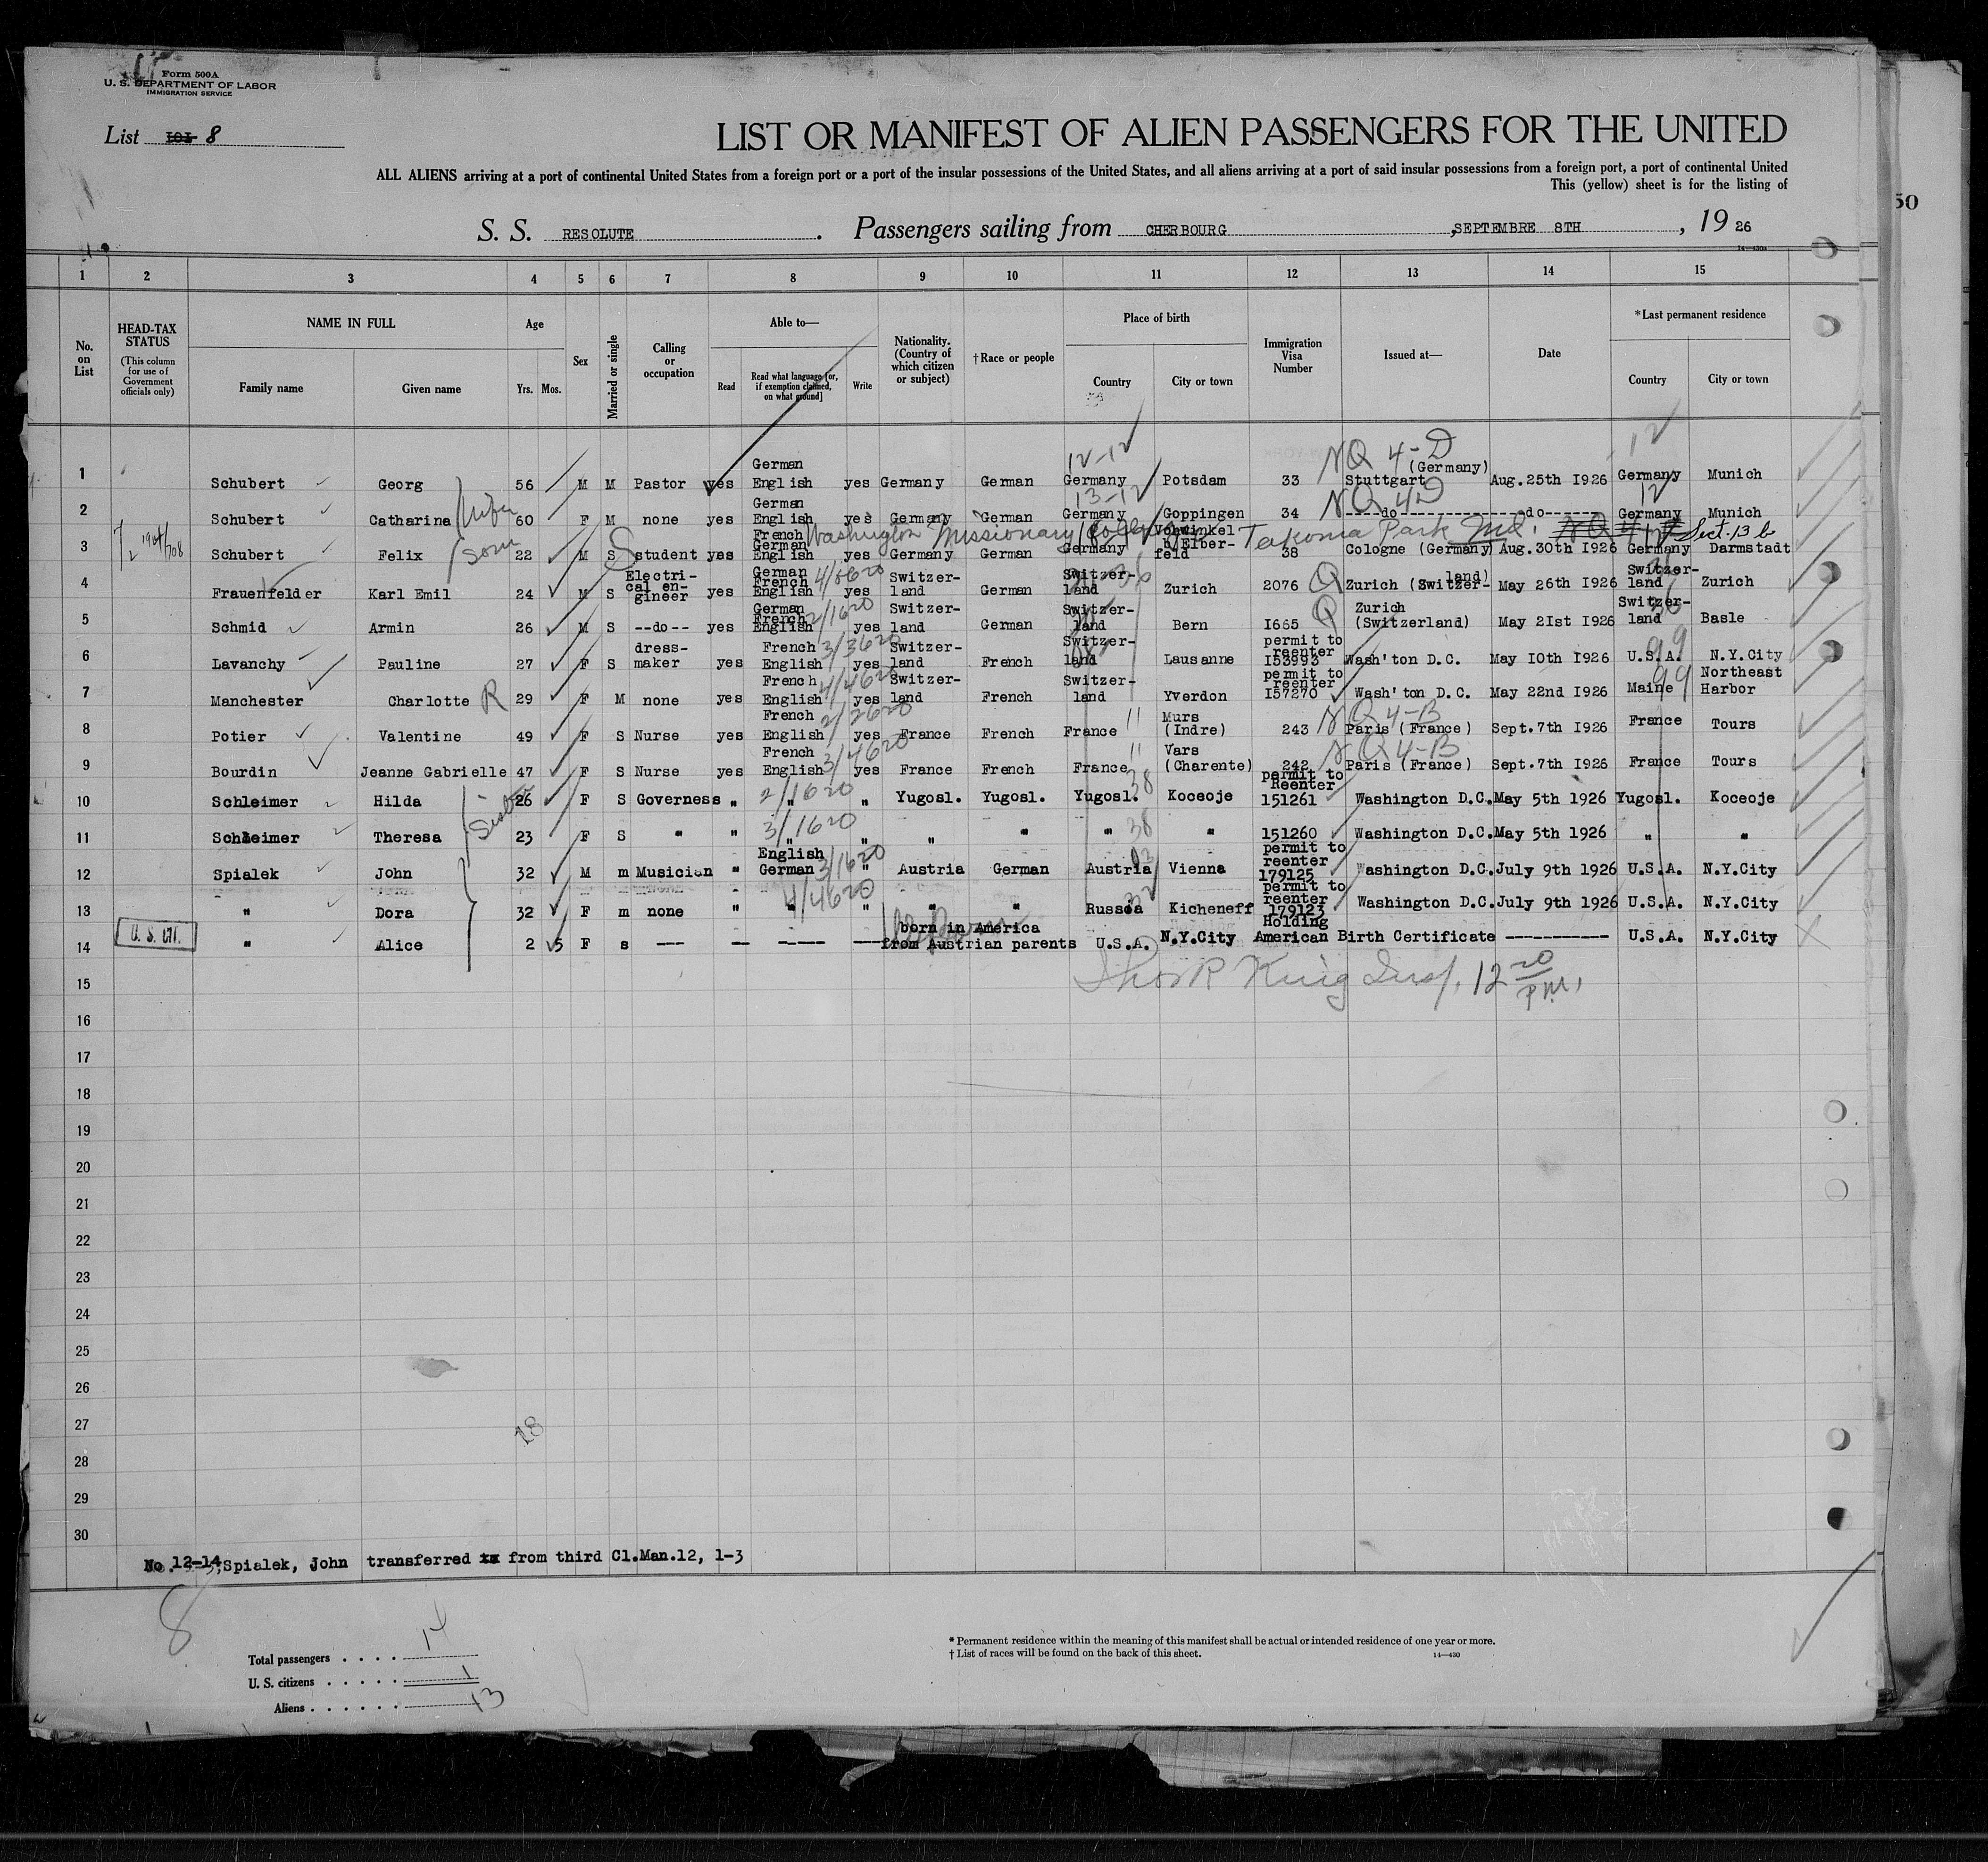 Form 500A
U. S. DEPARTMENT OF LABOR
IMMIGRATION SERVICE
List 101 8
LIST OR MANIFEST OF ALIEN PASSENGERS FOR THE UNITED
ALL ALIENS arriving at a port of continental United States from a foreign port or a port of the insular possessions of the United States, and all aliens arriving at a port of said insular possessions from a foreign port, a port of continental United
This (yellow) sheet is for the listing of
50
S. S. RESOLUTE. Passengers sailing from CHERBOURG, SEPTEMBRE 8TH, 19 26
14—430a
1 2 3 4 5 6 7 8 9 10 11 12 13 14 15
No. on List
HEAD-TAX STATUS (This column for use of Government officials only)
NAME IN FULL Family name Given name
Age Yrs. Mos.
Sex
Married or single
Calling or occupation
Able to— Read Read what language [or, if exemption claimed, on what ground] Write
Nationality. (Country of which citizen or subject)
†Race or people
Place of birth Country City or town
Immigration Visa Number
Issued at—
Date
*Last permanent residence Country City or town
12-12 NQ 4-D 12
1 Schubert Georg 56 M M Pastor yes German English yes Germany German Germany Potsdam 33 Stuttgart (Germany) Aug.25th I926 Germany Munich
13-12 NQ 4D 12
2 Schubert Catharina wife 60 F M none yes German English yes Germany German Germany Goppingen 34 ----do---- ----do---- Germany Munich
Washington Missionary College Takoma Park Md. NQ 4 D Sect. 13 b
3 Schubert Felix son 22 M S student yes French German English yes Germany German Germany Vohwinkel b/Elberfeld 38 Cologne (Germany) Aug.30th I926 Germany Darmstadt
4 Frauenfelder Karl Emil 24 M S Electrical engineer yes German French English yes Switzerland German Switzerland Zurich 2076 Q Zurich (Switzerland) May 26th I926 Switzerland Zurich
5 Schmid Armin 26 M S --do-- yes German French English 2/1620 yes Switzerland German Switzerland Bern I665 Q Zurich (Switzerland) May 2Ist I926 Switzerland Basle
6 Lavanchy Pauline 27 F S dressmaker yes French English 3/3620 yes Switzerland French Switzerland Lausanne permit to reenter I53993 Wash'ton D.C. May I0th I926 U.S.A. 99 N.Y.City
7 Manchester Charlotte R 29 F M none yes French English 4/4620 yes Switzerland French Switzerland Yverdon permit to reenter I57270 Wash'ton D.C. May 22nd I926 Maine 99 Northeast Harbor
8 Potier Valentine 49 F S Nurse yes French English 2/2620 yes France French France 11 Murs (Indre) 243 NQ 4-B Paris (France) Sept.7th I926 France Tours
9 Bourdin Jeanne Gabrielle 47 F S Nurse yes French English 3/4620 yes France French France 11 Vars (Charente) 242 NQ 4-B Paris (France) Sept.7th I926 France Tours
10 Schleimer Hilda 26 F S Governess " " 2/1620 " Yugosl. Yugosl. Yugosl. 38 Koceoje permit to Reenter 151261 Washington D.C. May 5th 1926 Yugosl. Koceoje
11 Schleimer Theresa 23 F S " " " 3/1620 " " " " 38 " 151260 Washington D.C. May 5th 1926 " "
12 Spialek John 32 M m Musician " English German 3/1620 " Austria German Austria Vienna permit to reenter 179125 Washington D.C. July 9th 1926 U.S.A. N.Y.City
13 " Dora 32 F m none " " 4/4620 " " " Russia Kicheneff permit to reenter 179123 Washington D.C. July 9th 1926 U.S.A. N.Y.City
14 U. S. CIT. " Alice 2 5 F s --- -- ----- --- born in America from Austrian parents U.S.A. N.Y.City Holding American Birth Certificate ----------- U.S.A. N.Y.City
15 King Insp. 12 20 P.M.
16
17
18
19
20
21
22
23
24
25
26
27
28
29
30
18
No.12-14, Spialek, John transferred from third Cl.Man.12, 1-3
8
Total passengers . . . . 14
U. S. citizens . . . . . 1
Aliens . . . . . . 13
* Permanent residence within the meaning of this manifest shall be actual or intended residence of one year or more.
† List of races will be found on the back of this sheet.
14—430